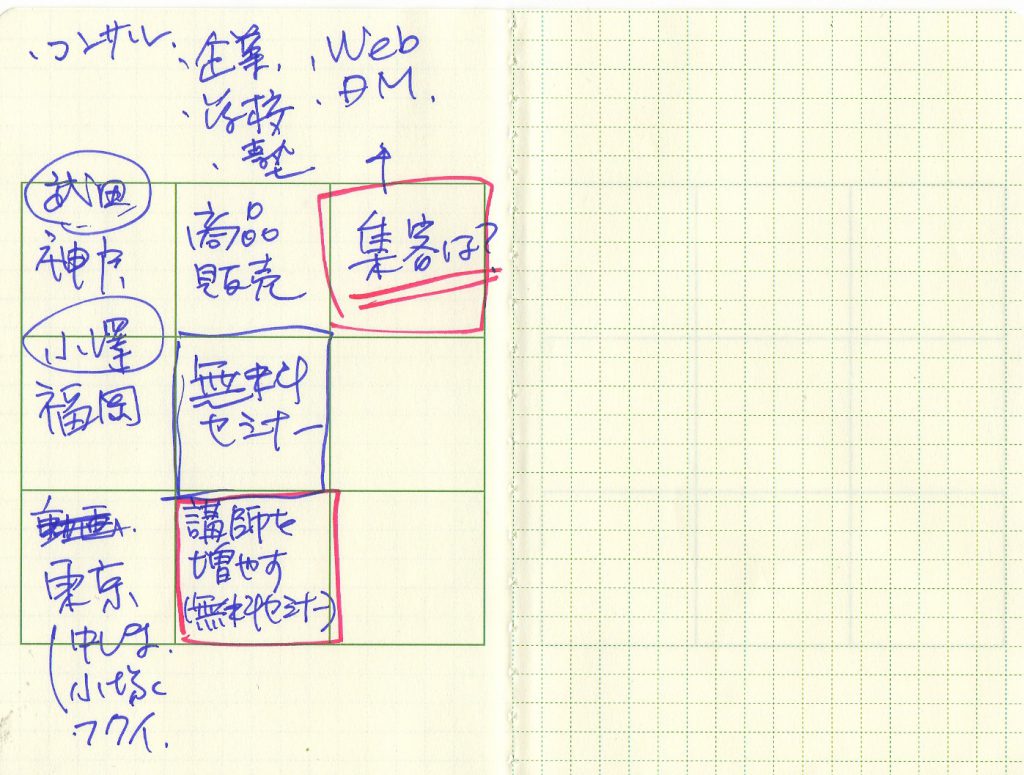 ・コンサル.
・企業.
・学校
・塾
・Web
・DM.
↑
武田
神戸
商品
販売
集客は?
小澤
福岡
無料
セミナー
講師を
増やす
(無料セミナー)
東京
フクイ.